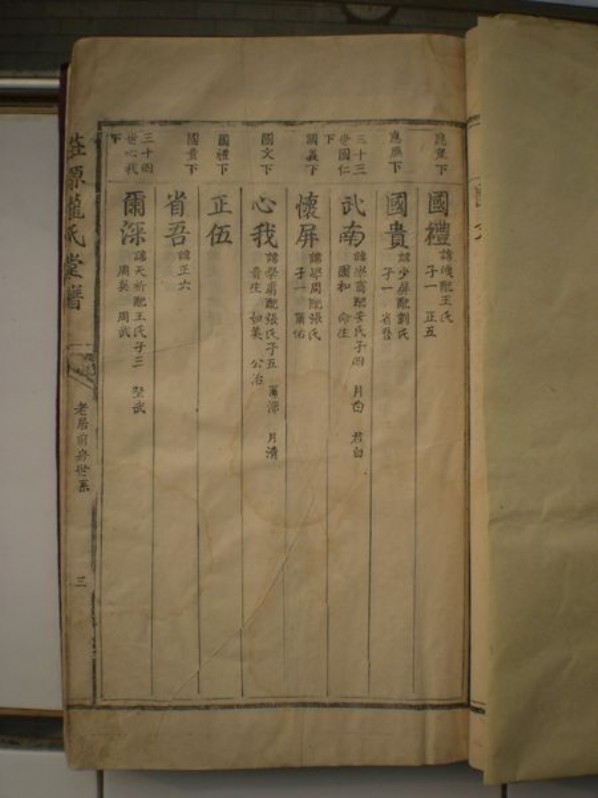 應下
國禮
諱 配王氏
子一 正五
應下
國貴
諱少屏配劉氏
子一 省吾
三十三
世國仁
下
武南
諱學 配安氏子四 月白 君白
國和 命生
國義下
懷屏
諱學周配張氏
子一 佑
國文下
心我
諱學 配張氏子五 爾深 月清
貴生 公治
國禮下
正伍
國貴下
省吾
諱正六
三十四
世心我
下
爾深
諱天祈配王氏子三 武
周英 周武
莊源龍氏堂譜
老居前房世系
三